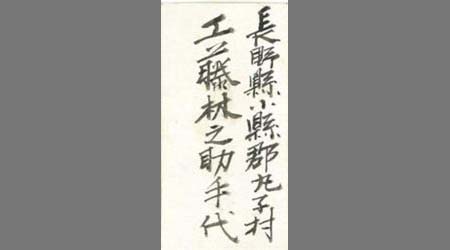 長野縣小縣郡丸子村
工藤林之助手代